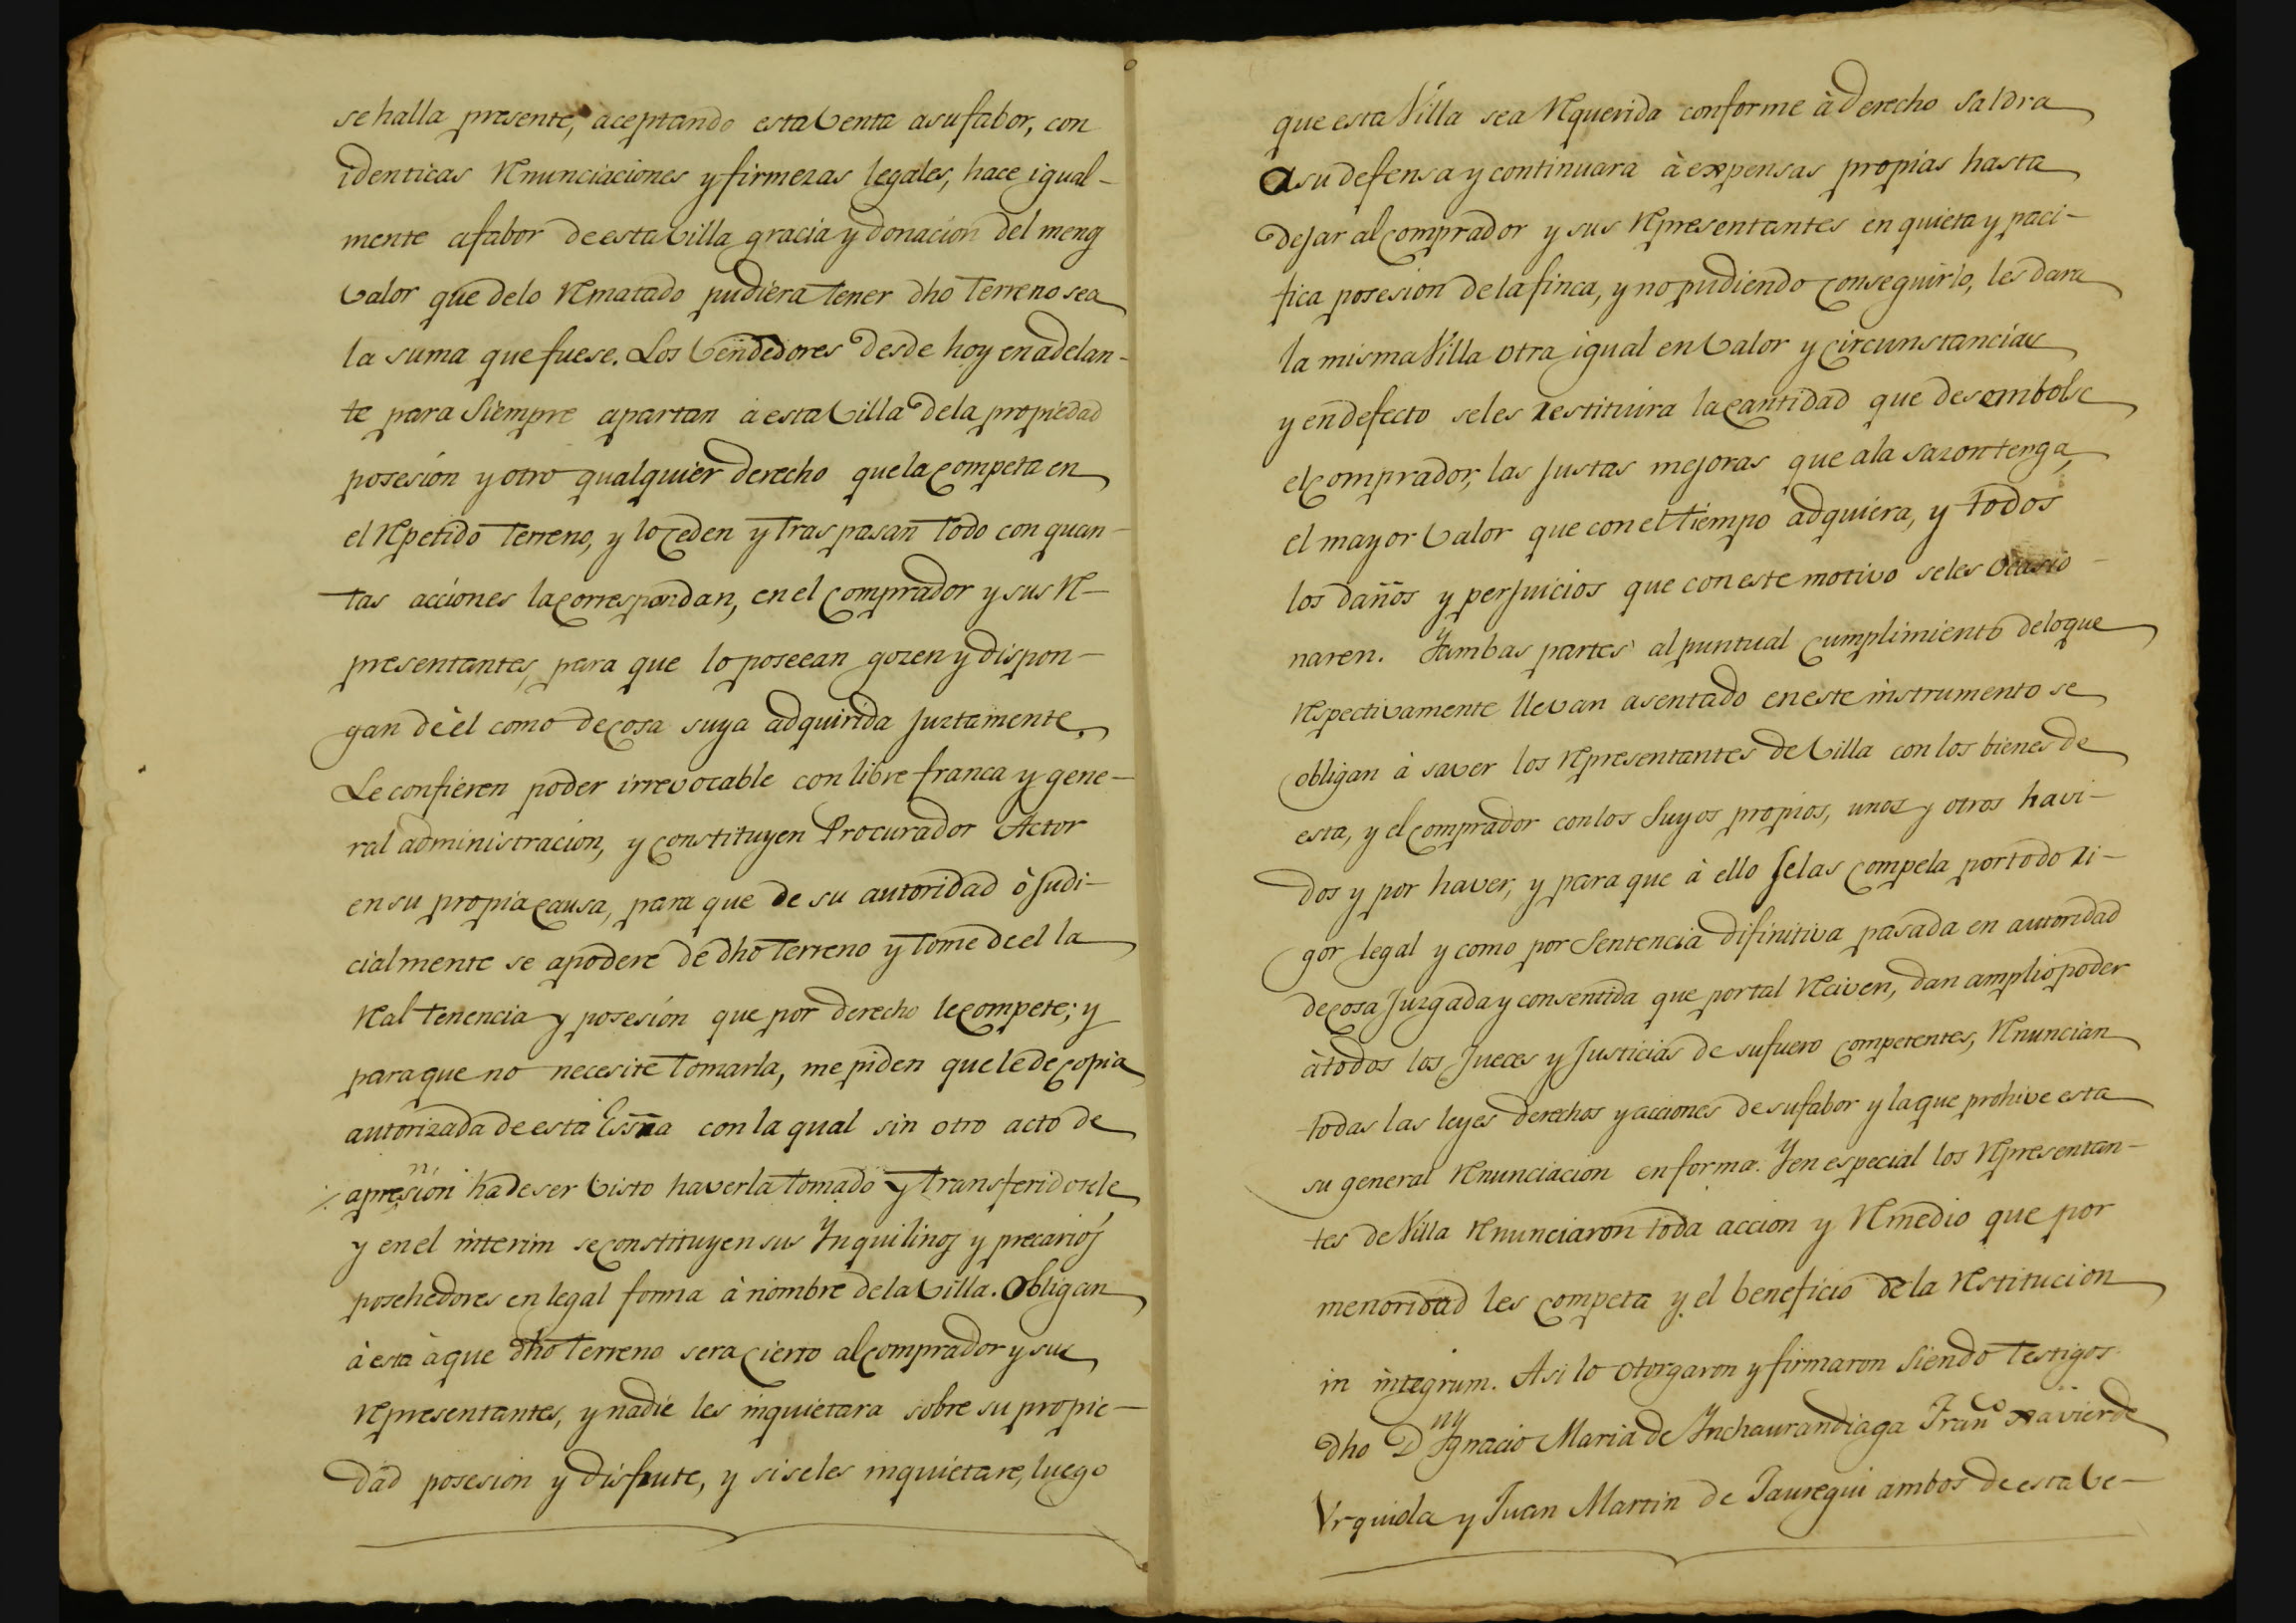 se halla presente, aceptando esta venta a su fabor, con
identicas renunciaciones y firmezas legales, hace igual-
mente a fabor de esta villa gracia y donacion del menos
valor que delo rematado pudiera tener dho terreno sea
la suma que fuese. Los vendedores desde hoy en adelan-
te para siempre apartan à esta villa de la propiedad
posesion y otro qualquier derecho que la competa en
el repetido terreno, y lo ceden y traspasan todo con quan-
tas acciones la correspondan, en el comprador y sus re-
presentantes, para que lo poseean gozen y dispon-
gan de èl como de cosa suya adquirida justamente.
Le confieren poder irrevocable con libre franca y gene-
ral administracion, y constituyen Procurador Actor
en su propia causa, para que de su autoridad ò judi-
cialmente se apodere de dho terreno y tome de el la
real tenencia y posesion que por derecho le compete; y
para que no necesite tomarla, me piden que le de copia
autorizada de esta Essra con la qual sin otro acto de
apresnion ha de ser visto haverla tomado y transferidosele
y en el interim se constituyen sus Ynquilinos y precarios
posehedores en legal forma à nombre de la villa. Obligan
à esta à que dho terreno sera cierto al comprador y sus
representantes, y nadie les inquietara sobre su propie-
dad posesion y disfrute, y si se les inquietare, luego
que esta Villa sea requerida conforme à derecho saldra
a su defensa y continuara à expensas propias hasta
dejar al comprador y sus representantes en quieta y paci-
fica posesion de la finca, y no pudiendo conseguirlo, les dara
la misma Villa otra igual en valor y circunstancias
y en defecto se les restituira la cantidad que desembolse
el comprador, las justas mejoras que a la sazon tenga,
el mayor valor que con el tiempo adquiera, y todos
los daños y perjuicios que con este motivo se les ocasio-
naren. Y ambas partes al puntual cumplimiento de lo que
respectivamente llevan asentado en este instrumento se
obligan à saver los representantes de villa con los bienes de
esta, y el comprador con los suyos propios, unos y otros havi-
dos y por haver, y para que à ello se las compela por todo ri-
gor legal y como por sentencia difinitiva pasada en autoridad
de cosa juzgada y consentida que por tal reciven, dan amplio poder
à todos los Jueces y Justicias de su fuero competentes, renuncian
todas las leyes derechos y acciones de su fabor y la que prohive esta
su general renunciacion en forma. Y en especial los representan-
tes de Villa renunciaron toda accion y remedio que por
menoridad les competa y el beneficio de la restitucion
in integrum. Asi lo otorgaron y firmaron siendo testigos
dho Dn Ygnacio Maria de Ynchaurandiaga Franco Xavier de
Urquiola y Juan Martin de Jauregui ambos de esta ve-